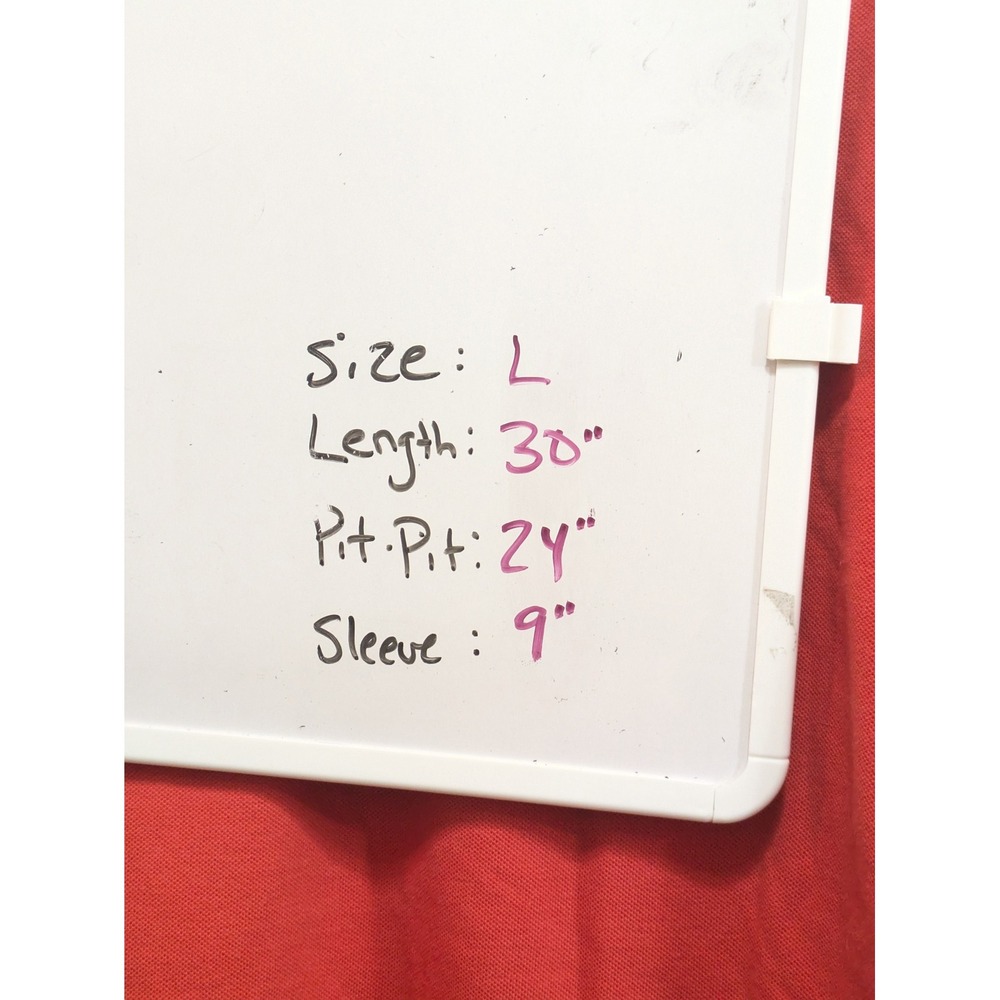 Size: L
Length: 30"
Pit-Pit: 24"
Sleeve: 9"